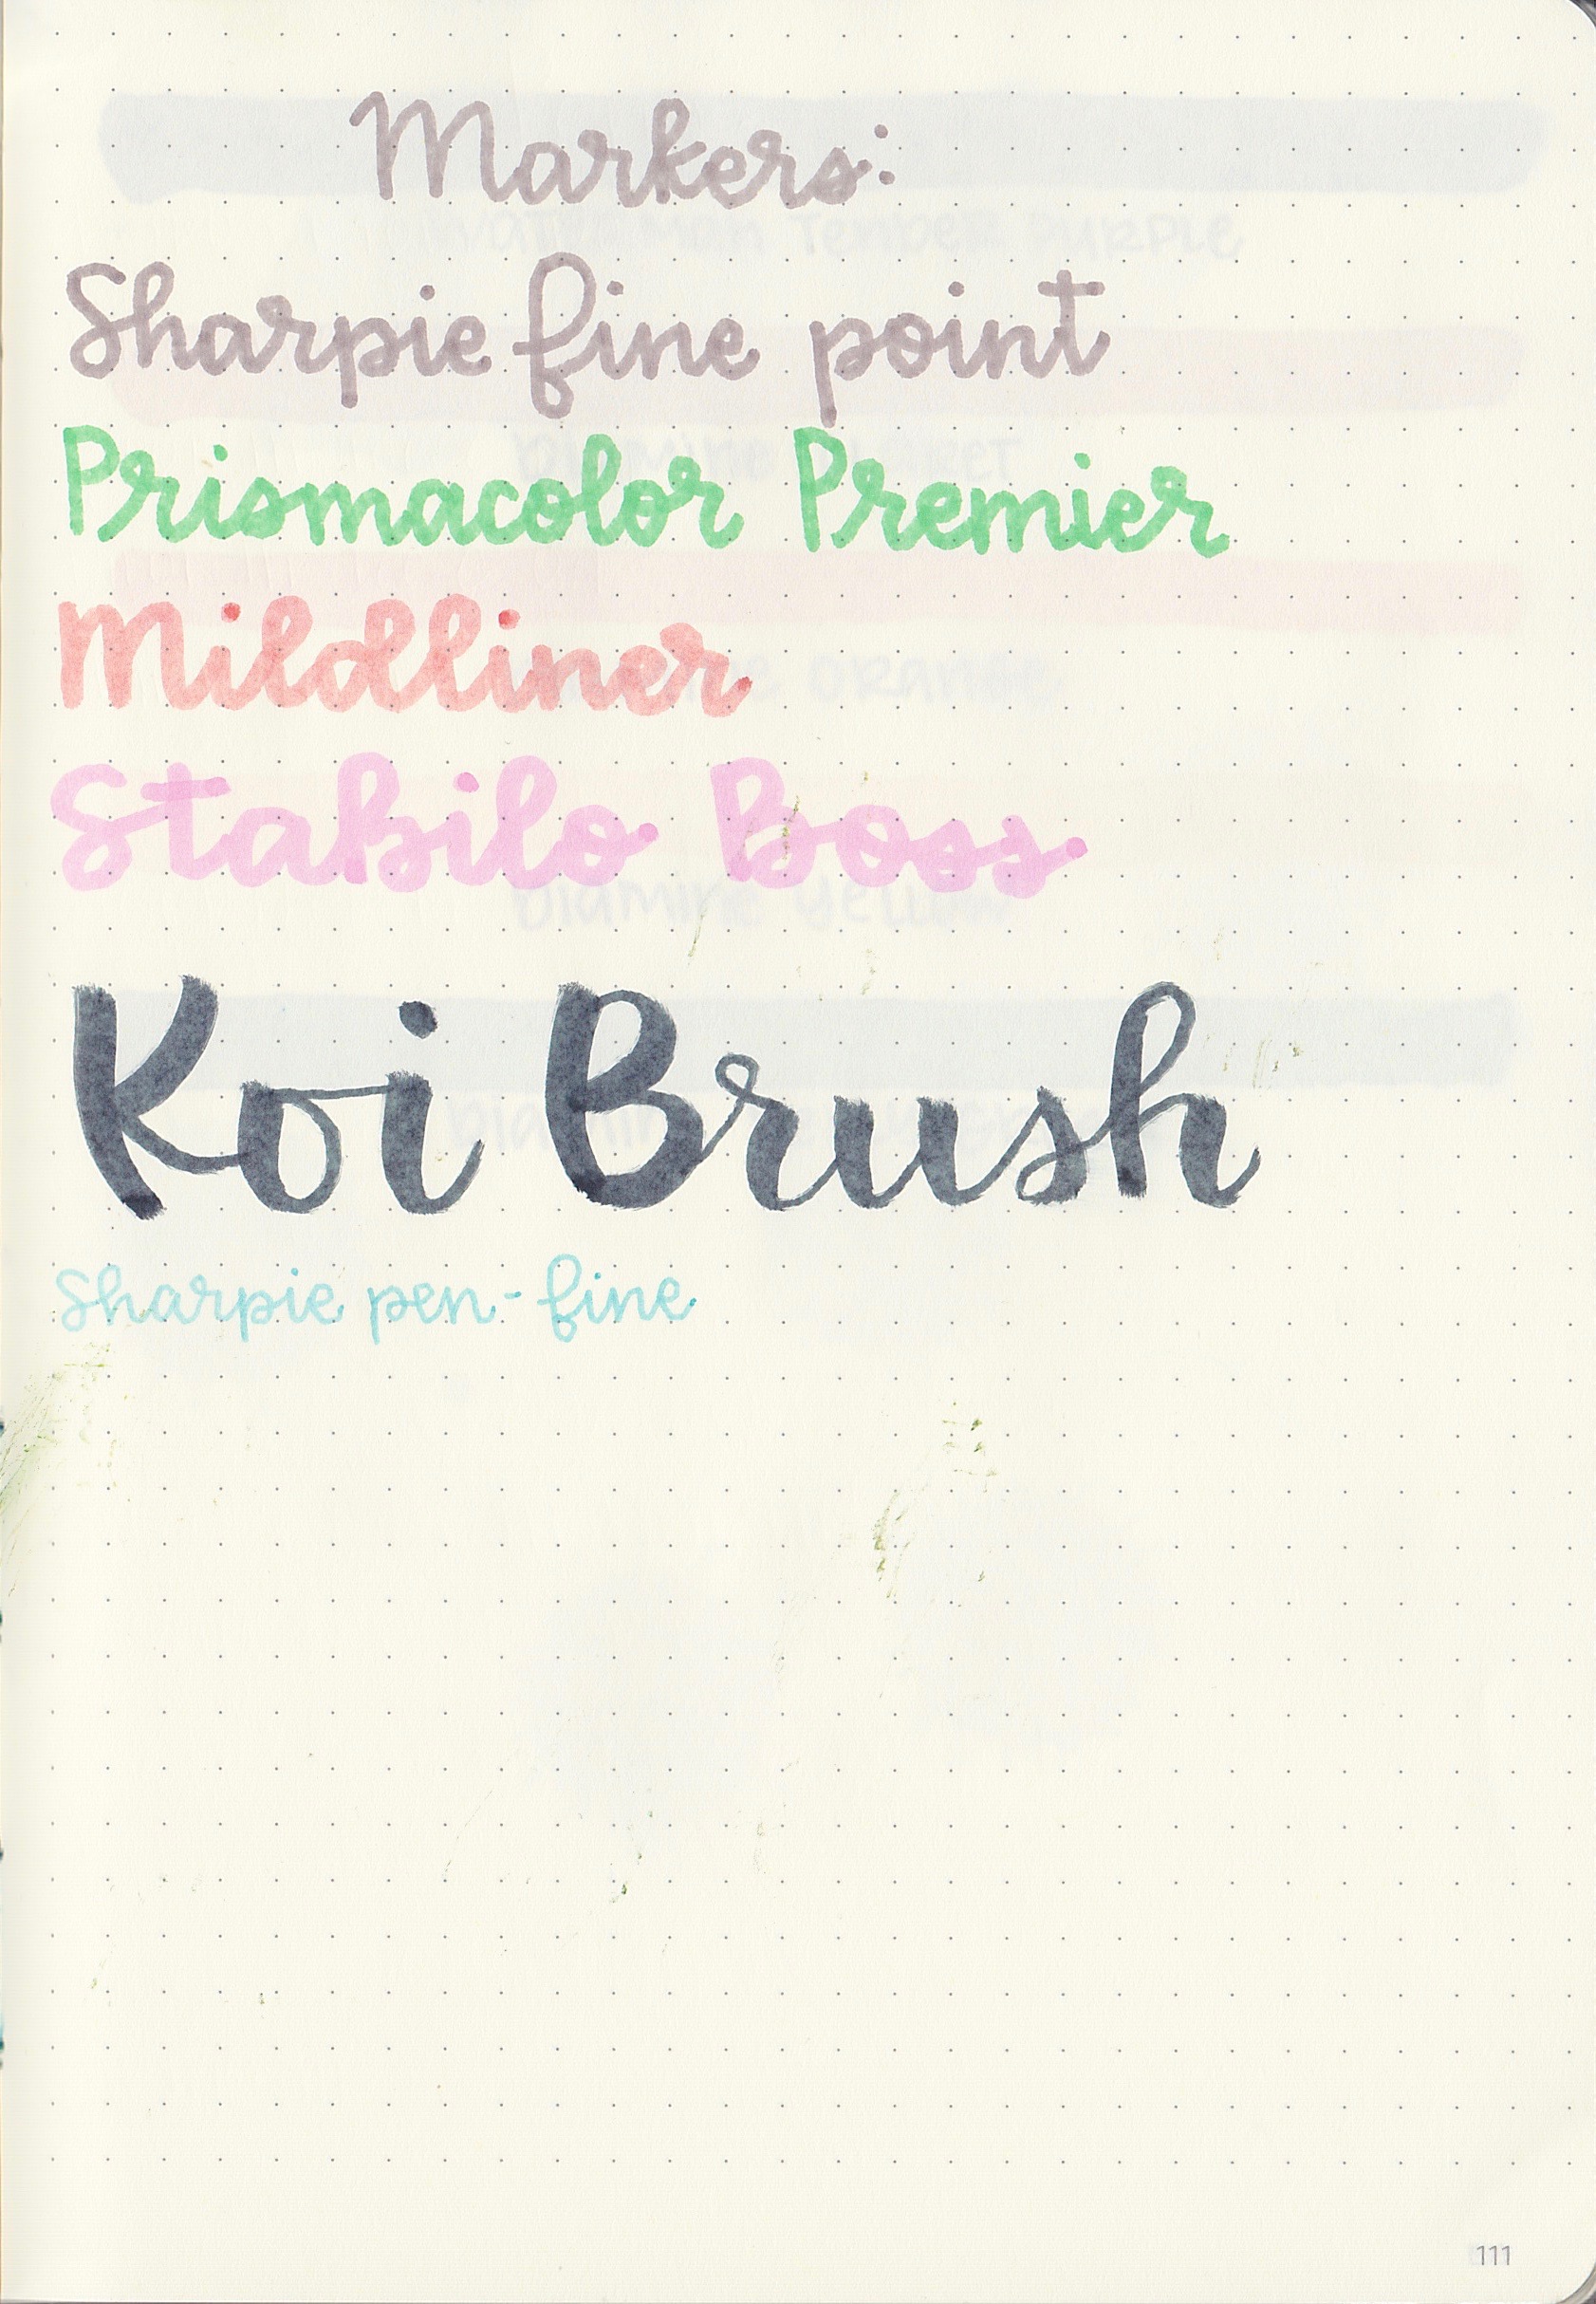 Markers:
Sharpie fine point
Prismacolor Premier
Mildliner
Stabilo Boss
Koi Brush
Sharpie pen-fine
111